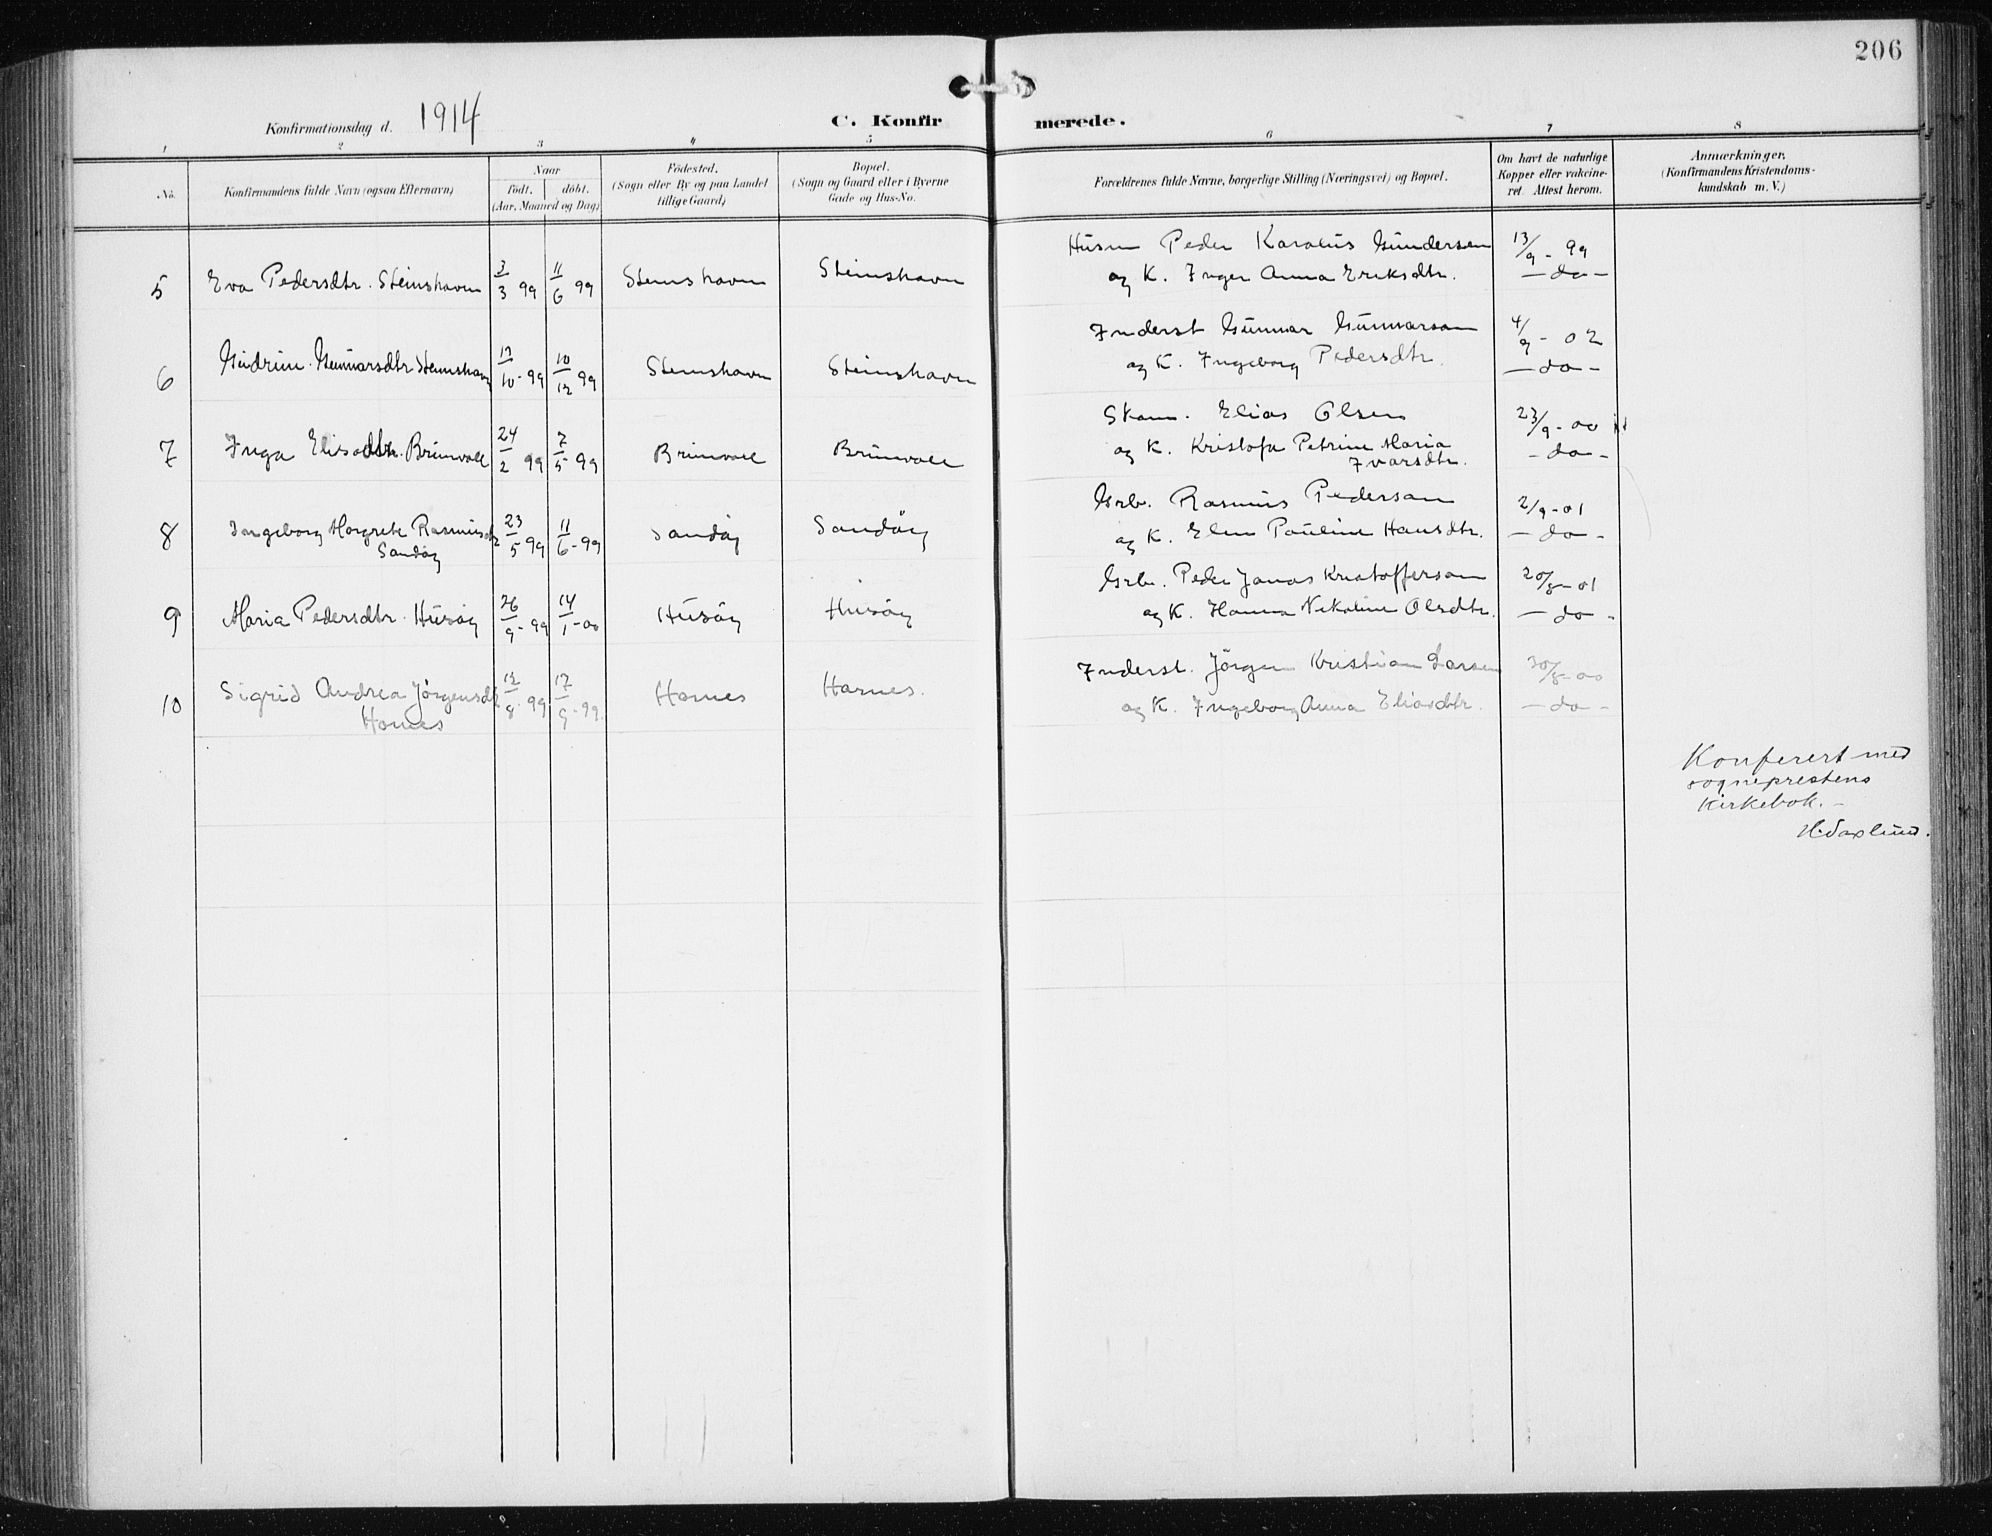 206
Konfirmationsdag d. 1914
C. Konfirmerede.
1 2 3 4 5 6 7 8
No.
Konfirmandens fulde Navn (ogsaa Efternavn)
Naar
født. døbt.
(Aar, Maaned og Dag)
Fødested.
(Sogn eller By og paa Landet
tillige Gaard)
Bopæl.
(Sogn og Gaard eller i Byerne
Gade og Hus-No.
Forældrenes fulde Navne, borgerlige Stilling (Næringsvei) og Bopæl.
Om havt de naturlige
Kopper eller vakcine-
ret. Attest herom.
Anmærkninger.
(Konfirmandens Kristendoms-
kundskab m. V.)
Husm Peder Karolius Gundersen 13/9 - 99
5 Eva Pedersdtr. Steinshavn 3/3 99 11/6 99 Steinshavn Steinshavn og K. Inger Anna Eriksdtr. — do —
Inderst Gunnar Gunnarson 4/9 - 02
6 Gudrun Gunnarsdtr Steinshavn 17/10 - 99 10/12 99 Steinshavn Steinshavn og K. Ingeborg Pedersdtr. — do -
Skom. Elias Olsen 23/9 - 00
7 Inga Elisadtr. Brunvoll 24/2 99 7/5 99 Brunvoll Brunvoll og K. Kristofa Petrine Maria - do -
Ivarsdtr.
Grb. Rasmus Pedersen 2/9 - 01
8 Ingeborg Margrete Rasmusdtr 23/5 99 11/6 - 99 Sandöy Sandöy og K. Elen Pauline Hansdtr. — do -
Sandöy
Grb. Peder Jonas Kristoffersen 20/8 - 01
9 Maria Pedersdtr. Husöy 26/9 - 99 14/1 - 00 Husöy Husöy og K. Hanna Nikoline Olsdtr. — do -
Inderst. Jörgen Kristian Larsen 30/8 - 00
10 Sigrid Andrea Jörgensdtr 12/8 - 99 17/9 - 99. Harnes Harnes. og K. Ingeborg Anna Eliasdtr. — do -
Harnes
Konferert med
sogneprestens
kirkebok. -
H. Saxlund.